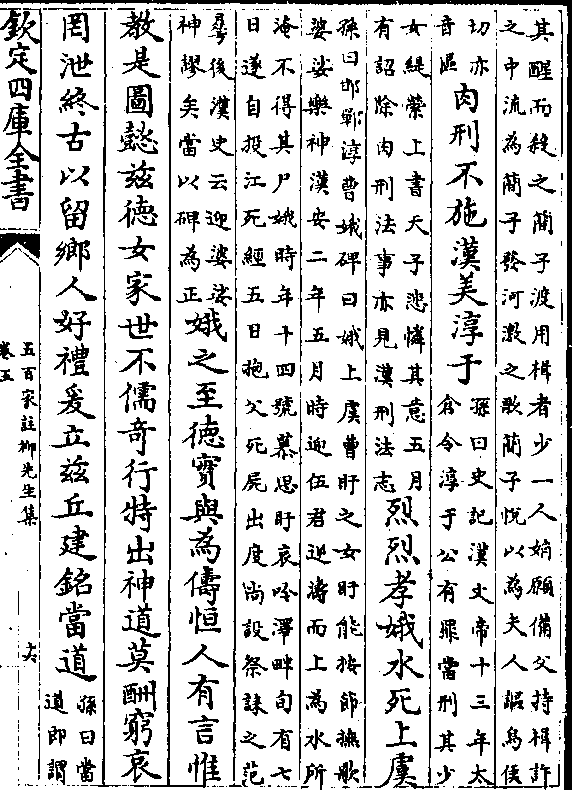 其醒而殺之簡子渡用楫者少一人娟願備父持楫許
之中流為簡子發河激之歌簡子悅以為夫人謳烏侯
切亦
音區
肉刑不施漢美淳于
孫曰史記漢文帝十三年太
倉令淳于公有罪當刑其少
女緹縈上書天子悲憐其意五月
有詔除肉刑法事亦見漢刑法志
烈烈孝娥水死上虞
孫曰邯鄲淳曹娥碑曰娥上虞曹盱之女盱能按節撫歌
婆娑樂神漢安二年五月時迎伍君逆濤而上為水所
淹不得其尸娥時年十四號慕思盱哀吟澤畔旬有七
日遂自投江死經五日抱父死屍出度尚設祭誄之范
曄後漢史云迎婆娑
神謬矣當以碑為正
娥之至德實與為儔恒人有言惟
教是圖懿茲德女家世不儒奇行特出神道莫酬窮哀
罔泄終古以留鄉人好禮爰立茲丘建銘當道
孫曰當
道即謂
欽定四庫全書
五百家註柳先生集
卷五
十六